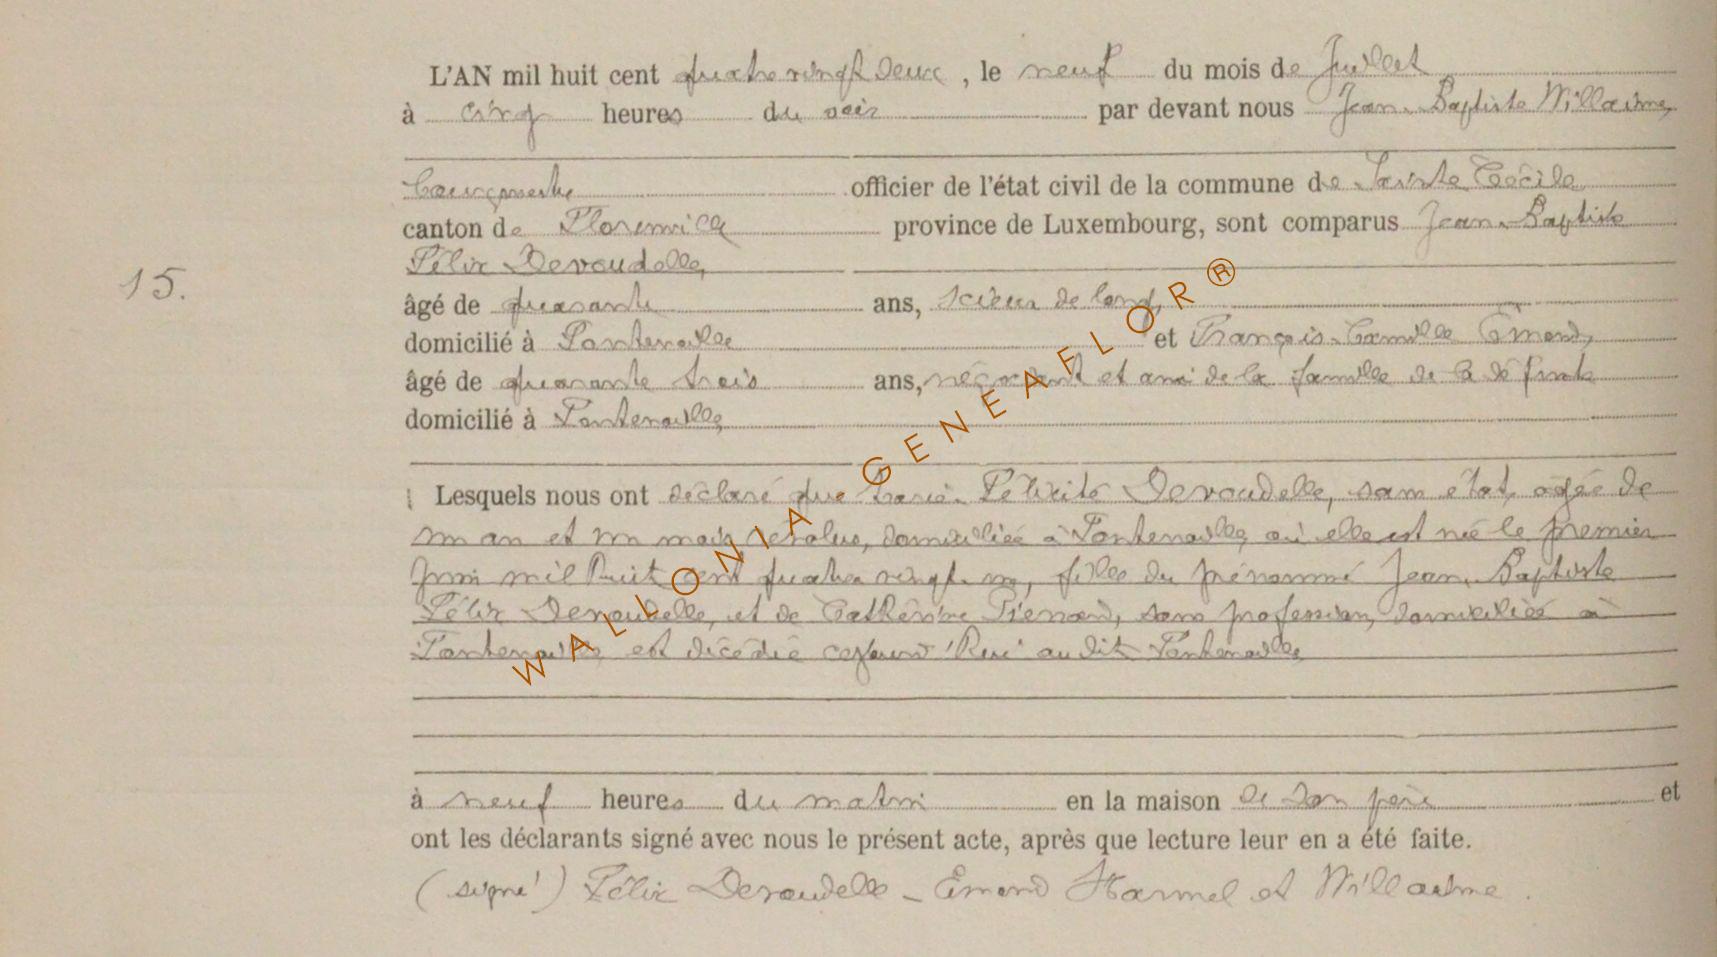 L'AN mil huit cent quatre vingt deux, le neuf du mois de Juillet
à cinq heures du soir par devant nous Jean-Baptiste Willaime,
Bourgmestre officier de l'état civil de la commune de Sainte Cécile
canton de Florenville province de Luxembourg, sont comparus Jean-Baptiste
Félix Devaudelle,
15.
âgé de quarante ans, scieur de long,
domicilié à Fontenoille et François-Camille Emond,
âgé de quarante trois ans, négociant et ami de la famille de la défunte
domicilié à Fontenoille,
Lesquels nous ont déclaré que Marie-Félicité Devaudelle, sans état, agée de
un an et un mois, révolus, domiciliée à Fontenoille, où elle est née le premier
Juin mil huit cent quatre vingt-un, fille du prénommé Jean-Baptiste
Félix Devaudelle, et de Catherine Pierrard, sans profession, domiciliés à
Fontenoille, est décédée cejourd'hui audit Fontenoille
à neuf heures du matin en la maison de son père et
ont les déclarants signé avec nous le présent acte, après que lecture leur en a été faite.
(signé) Félix Devaudelle - Emond Harmel et Willaime.
WALLONIA GENEAFLOR®